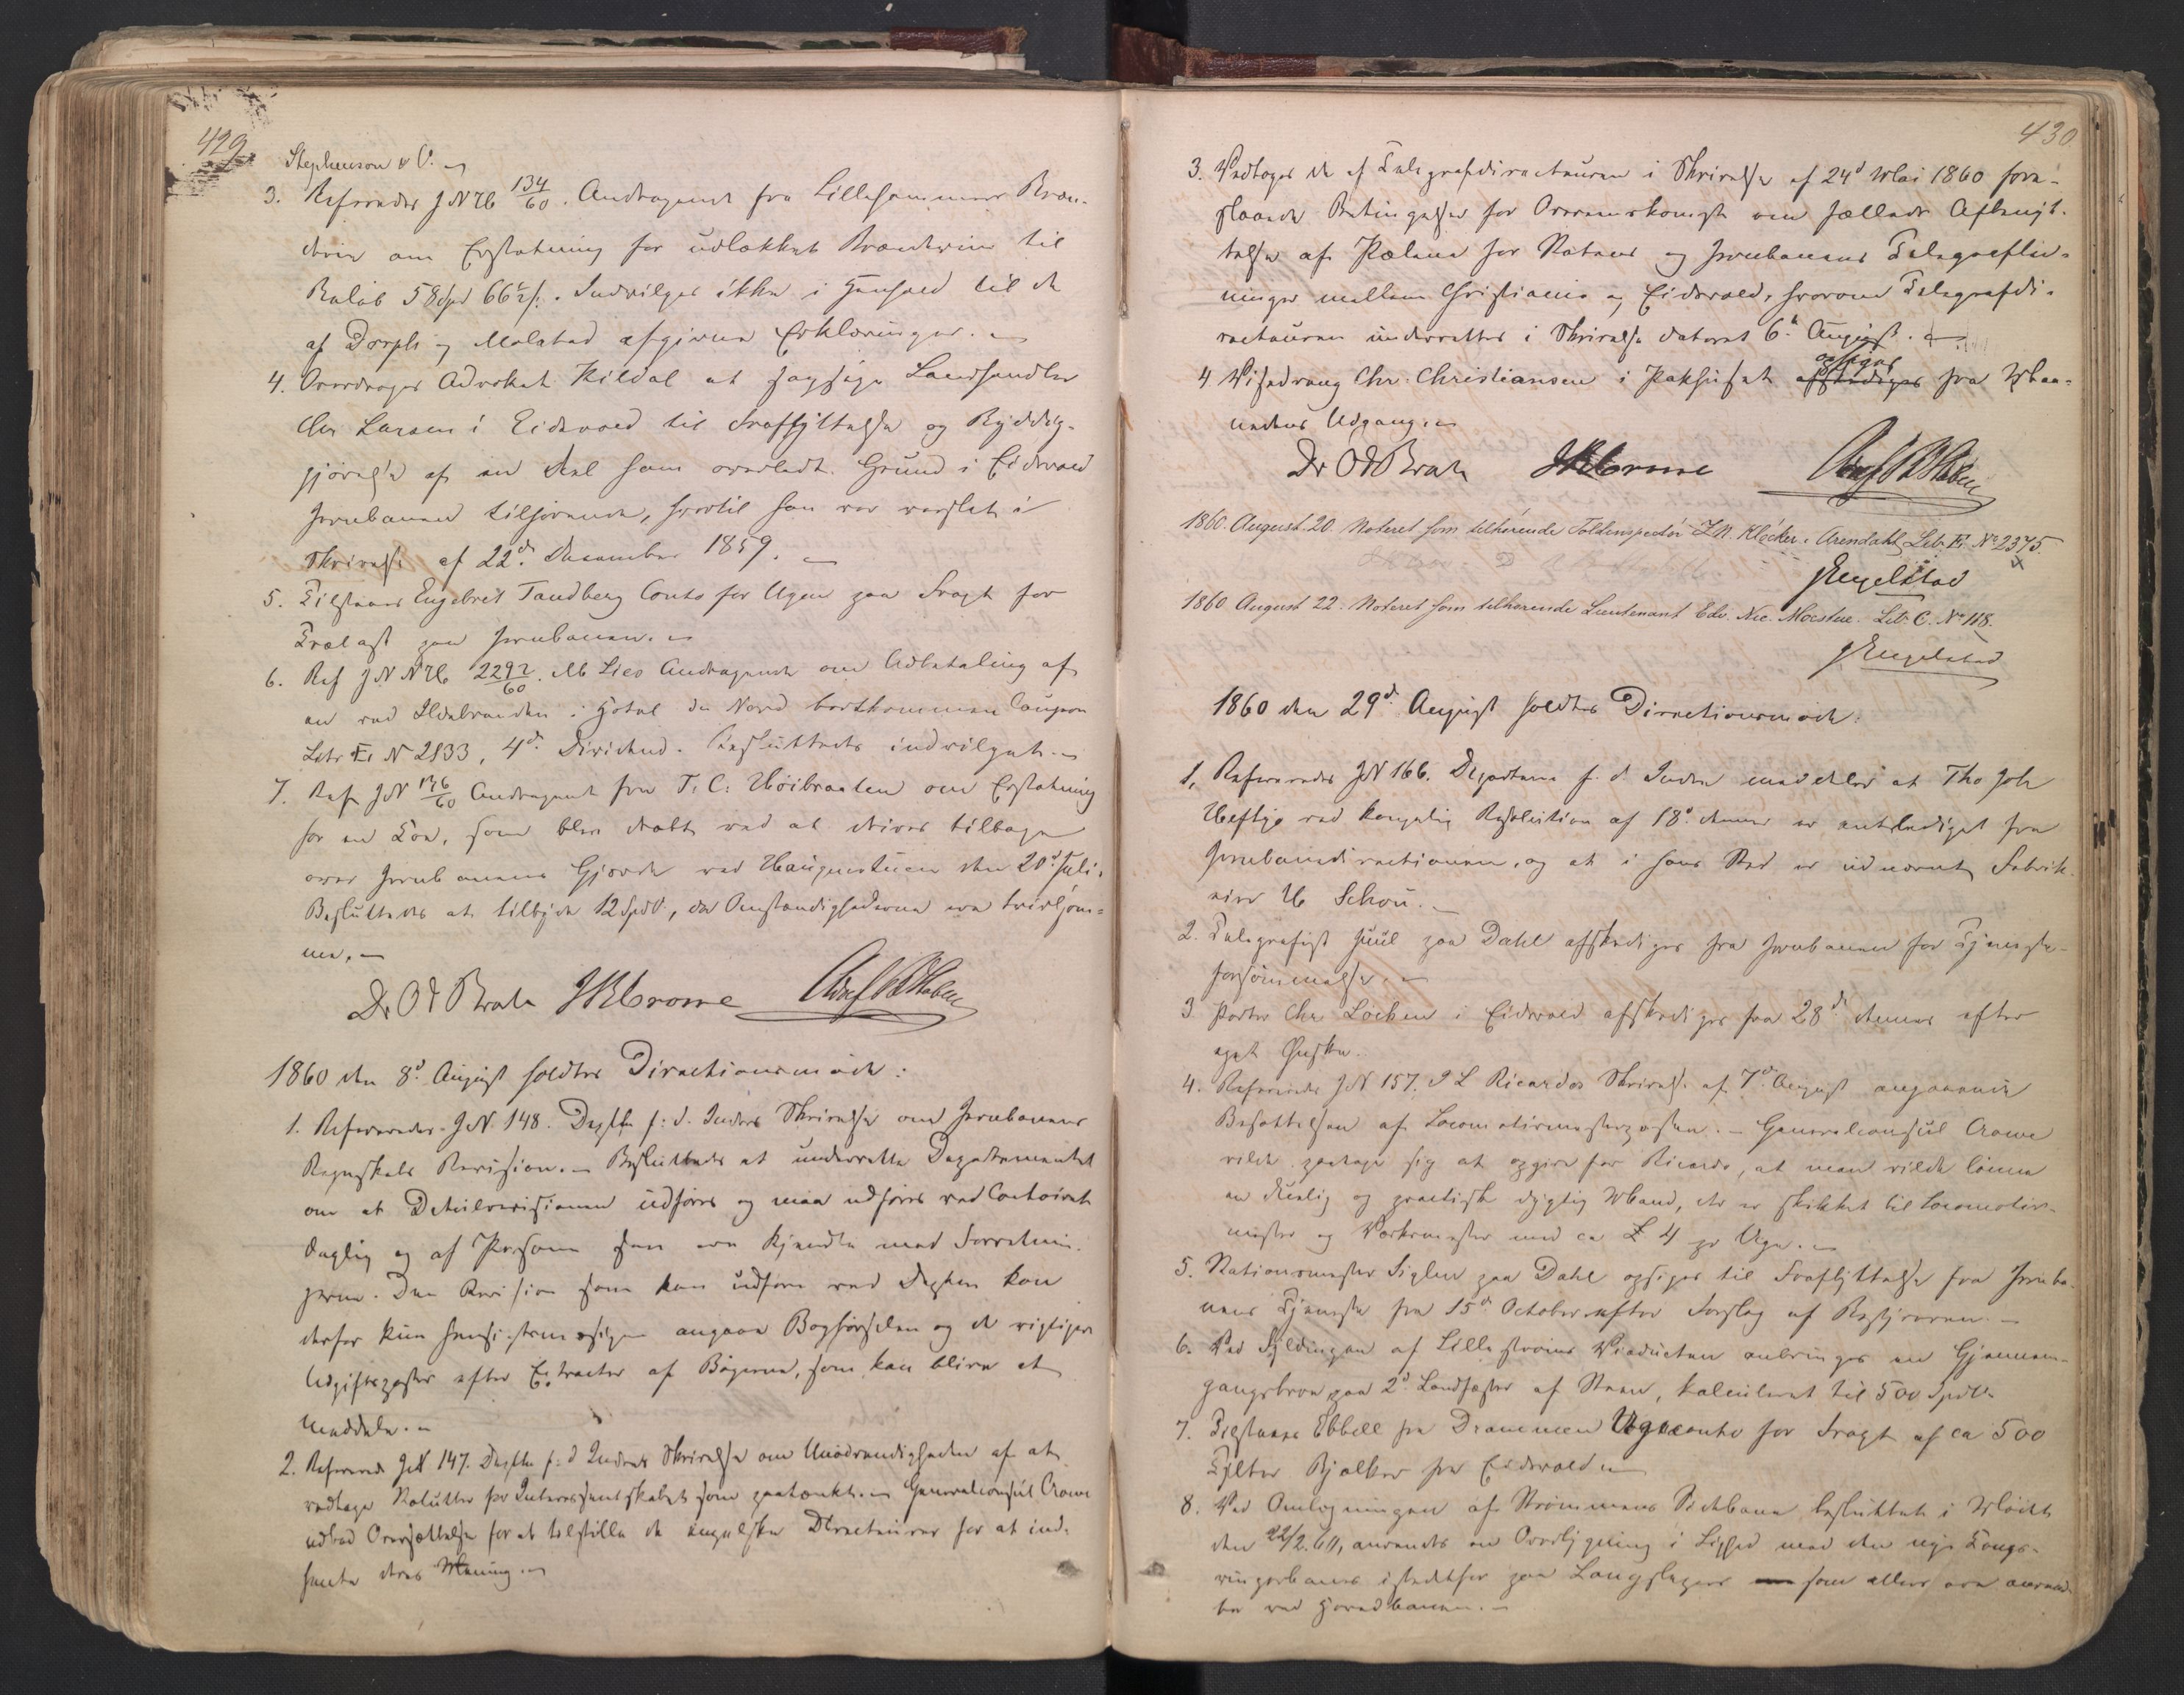 429.
Stephenson & C.
3. Refereredes J N 26 134/60. Andragende fra Lillehammers Bræn-
deri om Erstatning for udlækket Brændeviin til
Beløb 58 Spd 66½ s. Indvilges ikke i Henhold til de
af Dorph og Malstad afgivne Erklæringer.
4. Overdrages Advokat Kildal at sagsøge Landhandler
Chr Larsen i Eidsvold til Fraflyttelse og Ryddig-
gjørelse af en Deel ham overladt Grund i Eidsvold
Jernbanen tilhørende, hvortil han var varslet i
Skrivelse af 22d December 1859.
5. Tilstaaes Engebret Tandberg Conto for Ugen paa Fragt for
Trælast paa Jernbanen.
6. Ref J N 2292/60. Lies Andragende om Udbetaling af
en ved Ildebranden i Hotel du Nord bortkommen Coupon
Litr E N 2833, 4d Dividend. Besluttedes indvilget.
7. Ref J N 136/60 Andragende fra T. C. Høibraaten om Erstatning
for en Ko, som blev dræbt ved at drives tilbage
over Jernbanens Gjerde ved Haugnestuen den 20d Juli.
Besluttedes at tilbyde 12 Spd, da Omstændighederne ere tvivlsom-
me.
Dr O J Broch J R Crowe
1860 den 8d August holdtes Directionsmøde:
1. Refereredes J N 148. Depten f. d. Indres Skrivelse om Jernbanens
Regnskabs Revision. Besluttedes at underrette Departementet
om at Detailrevisionen udføres og maa udføres ved Contoiret
daglig og af Personer som ere kjendte med Forretnin-
gerne. Den Revision som kan udføres ved Depten kan
derfor kun angaae Bogførselen og de vigtigere
Udgiftsposter efter Extracter af Bøgerne, som kan blive at
meddele.
2. Refereredes J N 147. Depten f. d Indres Skrivelse om Unødvendigheden af at
vedtage Statutter for Interessentskabet som paatænkt. Generalconsul Crowe
udbad Oversættelse for at tilstille de engelske Directeurer for at ind-
hente deres Mening.
430
3. Vedtages de af Telegrafdirecteuren i Skrivelse af 24d Mai 1860 fore-
slaaede Betingelser for Overenskomst om fælleds Afbenyt-
telse af Pælene for Statens og Jernbanens Telegrafled-
ninger mellem Christiania og Eidsvold, hvorom Telegrafdi-
recteuren underrettes i Skrivelse dateret 6te August.
4 Visedreng Chr. Christiansen i Pakhuset opsiges fra Maa-
nedens Udgang.
Dr O J Broch J R Crowe
1860. August. 20. Noteret som tilhørende Toldinspector J. N. Kløcker i Arendahl Litr. E. No 2375.
J Engelstad
1860 August 22. Noteret som tilhørende Lieutenant Edv. Nic. Moestue. Litr. C. No 118.
J Engelstad
1860 den 29d August holdtes Directionsmøde:
1. Refereredes J N 166. Departem f. d Indre meddeler at Tho Joh
Heftye ved kongelig Resolution af 18d dennes er entlediget fra
Jernbanedirectionen, og at i hans Sted er udnævnt Fabrik-
eier H Schou.
2. Telegrafist Juul paa Dahl afskediges fra Jernbanen for Tjeneste-
forsømmelse.
3 Porter Chr Løcken i Eidsvold afskediges fra 28d dennes efter
eget Ønske.
4. Refereredes J N 157. J L Ricardos Skrivelse af 7d August angaaende
Besættelsen af Locomotivmesterposten. Generalconsul Crowe
vilde paatage sig at opgive for Ricardo, at man vilde lønne
en duelig og practisk dygtig Mand, der er skikket til Locomotiv-
mester og Værkmester med ca £ 4 pr Uge.
5. Stationsmester Sigler paa Dahl opsiges til Fraflyttelse fra Jernba-
nens Tjeneste fra 15d October efter Forslag af Bestyreren.
6. Ved Fyldingen af Lillestrøms Viaducten anbringes en Gjennem-
gangsbro paa 2d Landfæster af Steen, kalkuleret til 500 Spdlr
7. Tilstaaes Ebbell fra Drammen Ugeconto for Fragt af ca 500
Tylter Bjelker fra Eidsvold
8. Ved Omlægningen af Strømmens Sidebane besluttet i Møde
den 22/2. 60, anvendes en Overbygning i Lighed med den nye Kongs-
vingerbanes istedetfor paa Langslepers som ellers ere anvend-
te ved Hovedbanen.